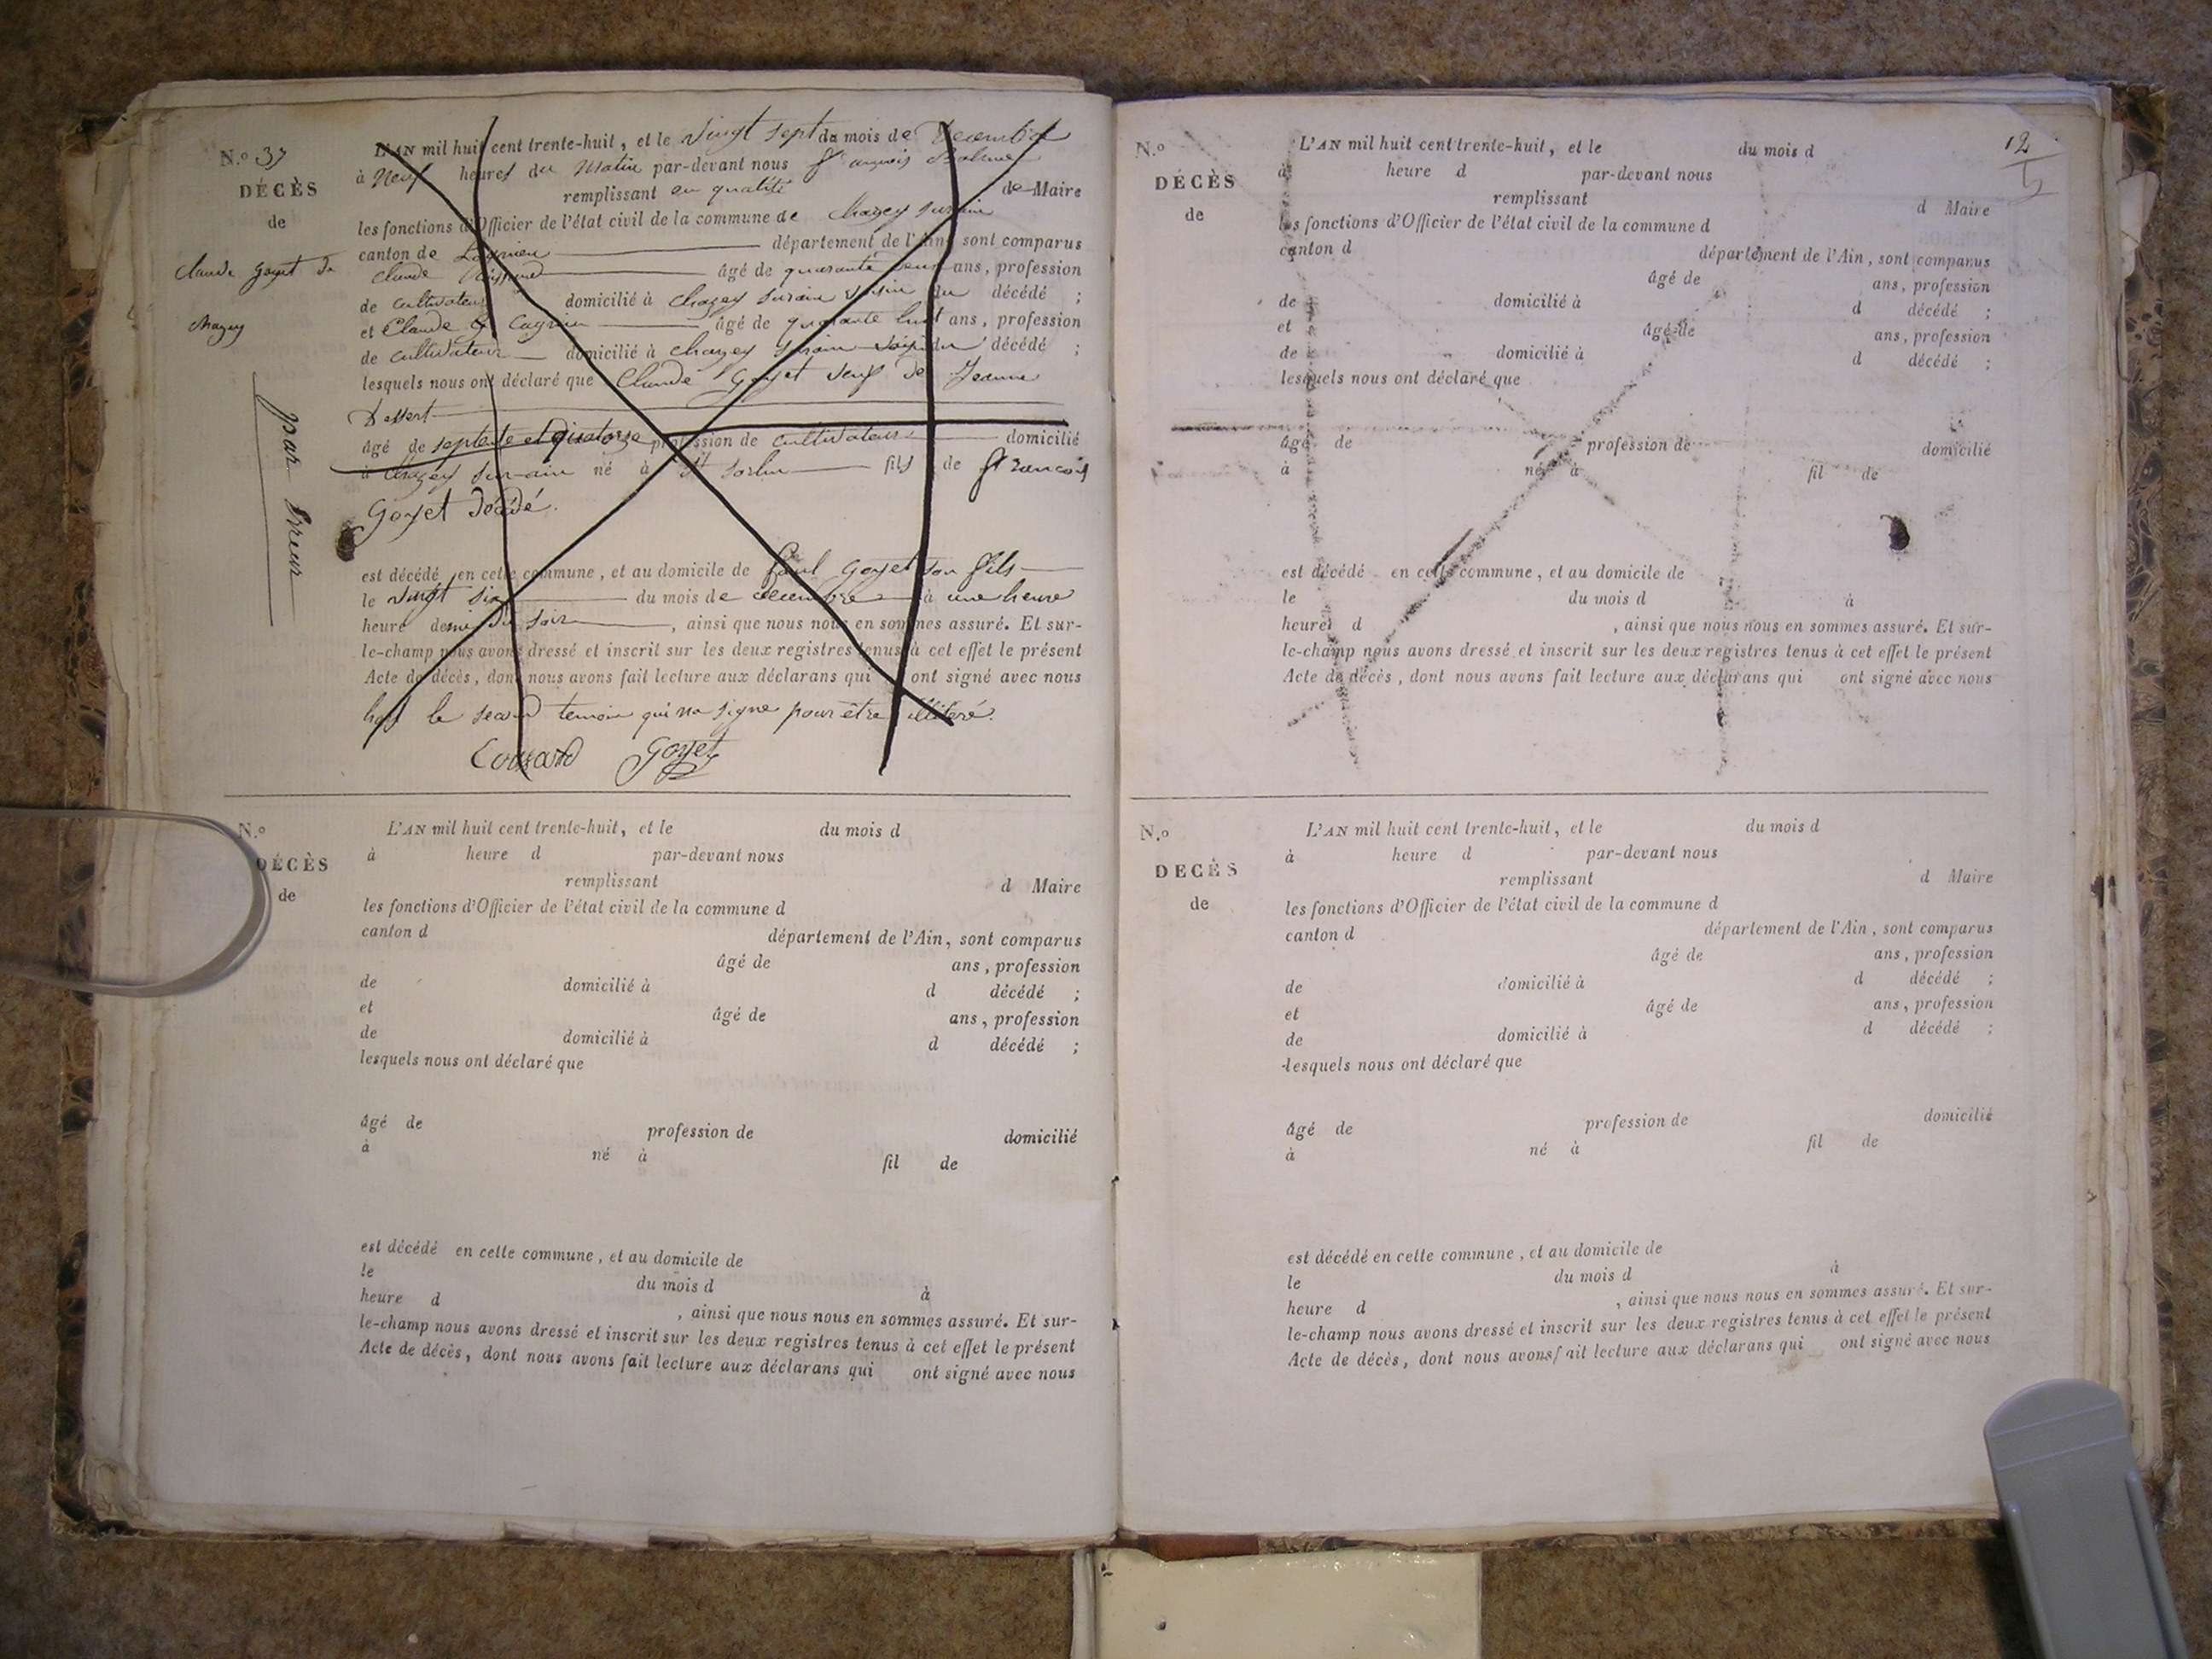 N.º 37
DÉCÈS
de
Claude Goyet de
Chazey
par Erreur
L'AN mil huit cent trente-huit, et le vingt sept du mois de Decembre
à Neuf heures du Matin par-devant nous
remplissant en qualité de Maire
les fonctions d'Officier de l'état civil de la commune de Chazey sur ain
canton de Lagnieu département de l'Ain, sont comparus
Claude âgé de quarante ans, profession
de cultivateur domicilié à Chazey sur ain voisin du décédé ;
et Claude âgé de quarante huit ans, profession
de cultivateur domicilié à Chazey sur ain voisin du décédé ;
lesquels nous ont déclaré que Claude Goyet veuf de Jeanne
âgé de septante et quatorze profession de cultivateur domicilié
à Chazey sur-ain né à St Sorlin fils de francois
Goyet décédé.
est décédé en cette commune, et au domicile de paul Goyet son fils
le vingt six du mois de decembre à une heure
heure demie du soir, ainsi que nous nous en sommes assuré. Et sur-
le-champ nous avons dressé et inscrit sur les deux registres tenus à cet effet le présent
Acte de décès, dont nous avons fait lecture aux déclarans qui ont signé avec nous
le second temoin qui na signe pour être illiteré.
Goyet
N.º
DÉCÈS
de
L'AN mil huit cent trente-huit, et le du mois d
à heure d par-devant nous
remplissant d Maire
les fonctions d'Officier de l'état civil de la commune d
canton d département de l'Ain, sont comparus
âgé de ans, profession
de domicilié à d décédé ;
et âgé de ans, profession
de domicilié à d décédé ;
lesquels nous ont déclaré que
âgé de profession de domicilié
à né à fil de
est décédé en cette commune, et au domicile de
le du mois d à
heure d , ainsi que nous nous en sommes assuré. Et sur-
le-champ nous avons dressé et inscrit sur les deux registres tenus à cet effet le présent
Acte de décès, dont nous avons fait lecture aux déclarans qui ont signé avec nous
12
N.º
DÉCÈS
de
L'AN mil huit cent trente-huit, et le du mois d
à heure d par-devant nous
remplissant d Maire
les fonctions d'Officier de l'état civil de la commune d
canton d département de l'Ain, sont comparus
âgé de ans, profession
de domicilié à d décédé ;
et âgé de ans, profession
de domicilié à d décédé ;
lesquels nous ont déclaré que
âgé de profession de domicilié
à né à fil de
est décédé en cette commune, et au domicile de
le du mois d à
heure d , ainsi que nous nous en sommes assuré. Et sur-
le-champ nous avons dressé et inscrit sur les deux registres tenus à cet effet le présent
Acte de décès, dont nous avons fait lecture aux déclarans qui ont signé avec nous
N.º
DÉCÈS
de
L'AN mil huit cent trente-huit, et le du mois d
à heure d par-devant nous
remplissant d Maire
les fonctions d'Officier de l'état civil de la commune d
canton d département de l'Ain, sont comparus
âgé de ans, profession
de domicilié à d décédé ;
et âgé de ans, profession
de domicilié à d décédé ;
lesquels nous ont déclaré que
âgé de profession de domicilié
à né à fil de
est décédé en cette commune, et au domicile de
le du mois d à
heure d , ainsi que nous nous en sommes assuré. Et sur-
le-champ nous avons dressé et inscrit sur les deux registres tenus à cet effet le présent
Acte de décès, dont nous avons fait lecture aux déclarans qui ont signé avec nous